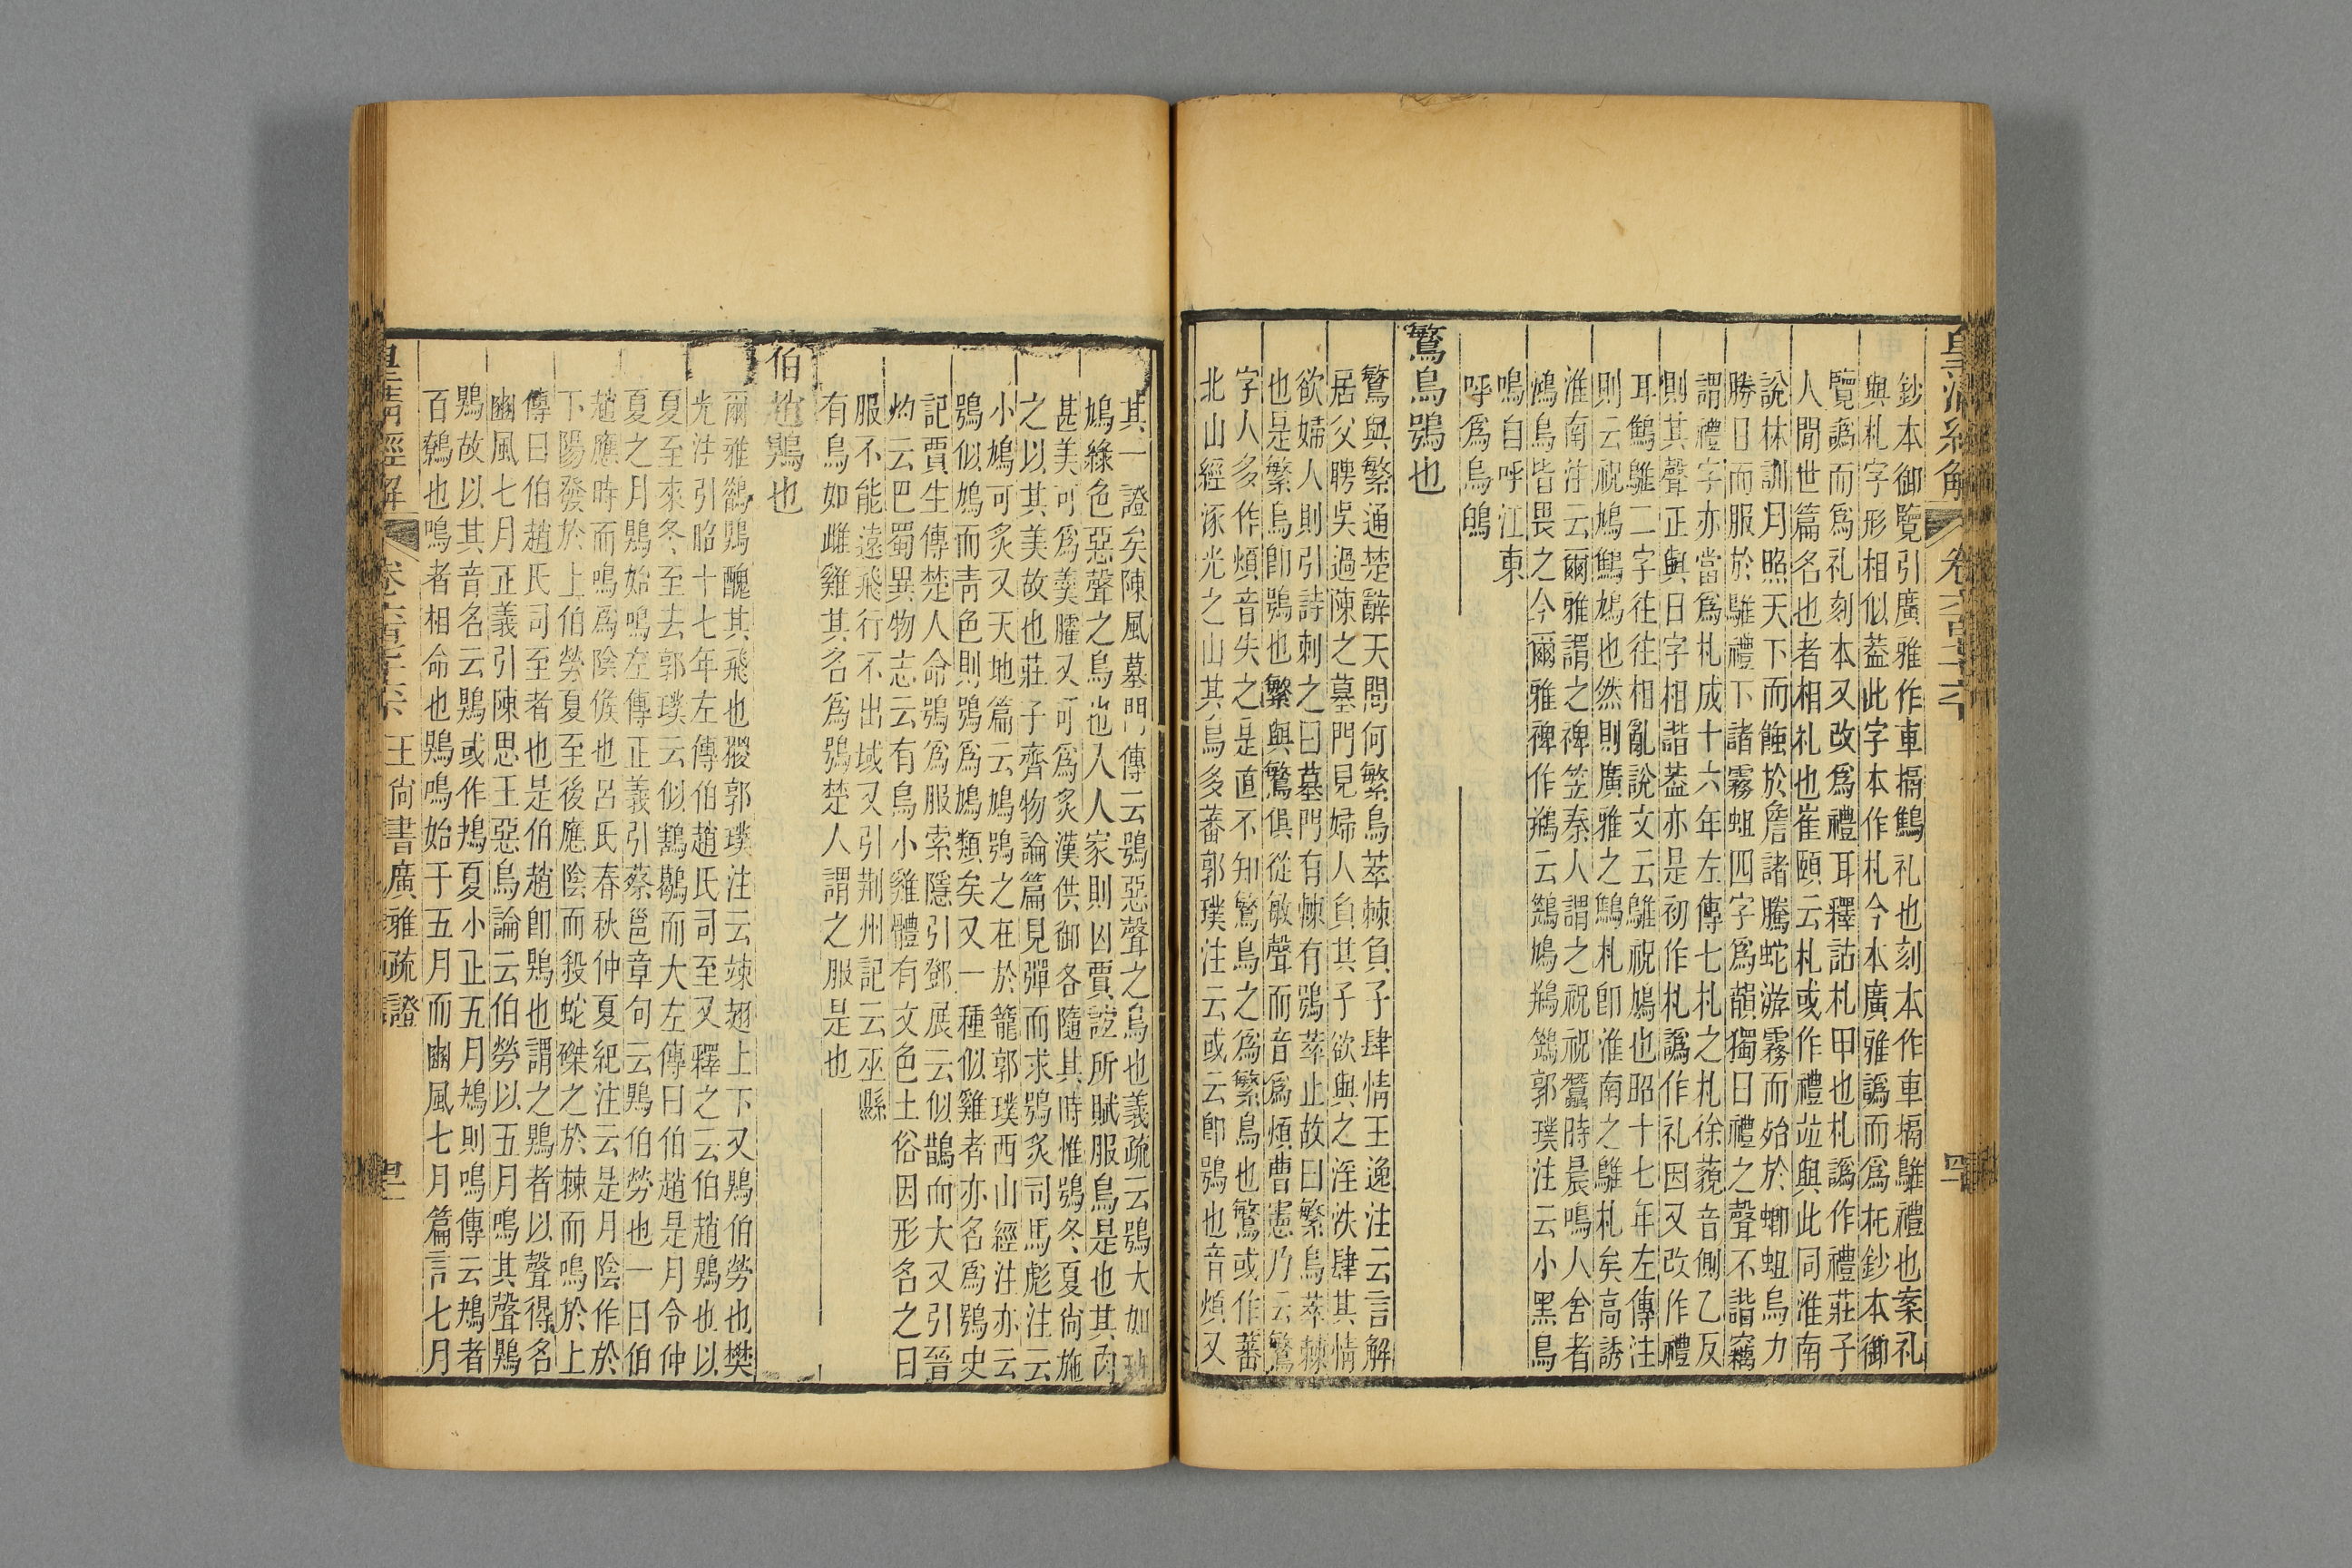 鈔本御覽引廣雅作車搹鷦礼也刻本作車搹鵻禮也案礼
與札字形相似葢此字本作札今本廣雅譌而爲札鈔本御
覽譌而爲礼刻本又改爲禮耳釋詁札甲也札譌作禮莊子
人閒世篇名也者相札也崔頤云札或作禮竝與此同淮南
說林訓月照天下而蝕於詹諸騰蛇游霧而殆於蝍蛆烏力
勝日而服於鵻禮下諸霧蛆四字爲韻獨日禮之聲不諧竊
謂禮字亦當爲札成十六年左傳七札之札徐藐音側乙反
則其聲正與日字相諧葢亦是初作札譌作礼因又改作禮
耳鷦鵻二字往往相亂說文云鵻祝鳩也昭十七年左傳注
則云祝鳩鷦鳩也然則廣雅之鷦札卽淮南之鵻札矣高誘
淮南注云爾雅謂之裨笠秦人謂之祝祝蠶時晨鳴人舍者
鴆鳥皆畏之今爾雅裨作鵧云鷑鳩鵧鷑郭璞注云小黑鳥
鳴自呼江東
呼爲烏鵖
鷩鳥鴞也
鷩與繁通楚辭天問何繁鳥萃棘負子肆情王逸注云言解
居父聘吳過陳之墓門見婦人負其子欲與之淫泆肆其情
欲婦人則引詩刺之曰墓門有棘有鴞萃止故曰繁鳥萃棘
也是繁鳥卽鴞也繁與鷩俱從敏聲而音爲煩曹憲乃云鷩
字人多作煩音失之是直不知鷩鳥之爲繁鳥也鷩或作蕃
北山經涿光之山其鳥多蕃郭璞注云或云卽鴞也音煩又
其一證矣陳風墓門傳云鴞惡聲之鳥也義疏云鴞大如班
鳩綠色惡聲之鳥也入人家則凶賈誼所賦服鳥是也其肉
甚美可爲羹臛又可爲炙漢供御各隨其時惟鴞冬夏尙施
之以其美故也莊子齊物論篇見彈而求鴞炙司馬彪注云
小鳩可炙又天地篇云鳩鴞之在於籠郭璞西山經注亦云
鴞似鳩而靑色則鴞爲鳩類矣又一種似雞者亦名爲鴞史
記賈生傳楚人命鴞爲服索隱引鄧展云似鵲而大又引晉
灼云巴蜀異物志云有鳥小雞體有文色土俗因形名之曰
服不能遠飛行不出域又引荆州記云巫縣
有鳥如雌雞其名爲鴞楚人謂之服是也
伯趙鶪也
爾雅鵲鶪醜其飛也猣郭璞注云竦翅上下又鶪伯勞也樊
光注引昭十七年左傳伯趙氏司至又釋之云伯趙鶪也以
夏至來冬至去郭璞云似鶷鶡而大左傳曰伯趙是月令仲
夏之月鶪始鳴左傳正義引蔡邕章句云鶪伯勞也一曰伯
趙應時而鳴爲陰候也呂氏春秋仲夏紀注云是月陰作於
下陽發於上伯勞夏至後應陰而殺蛇磔之於棘而鳴於上
傳曰伯趙氏司至者也是伯趙卽鶪也謂之鶪者以聲得名
豳風七月正義引陳思王惡鳥論云伯勞以五月鳴其聲鶪
鶪故以其音名云鶪或作鴂夏小正五月鴂則鳴傳云鴂者
百鷯也鳴者相命也鶪鳴始于五月而豳風七月篇言七月
皇淸經解 卷六百六十六 王尙書廣雅疏證